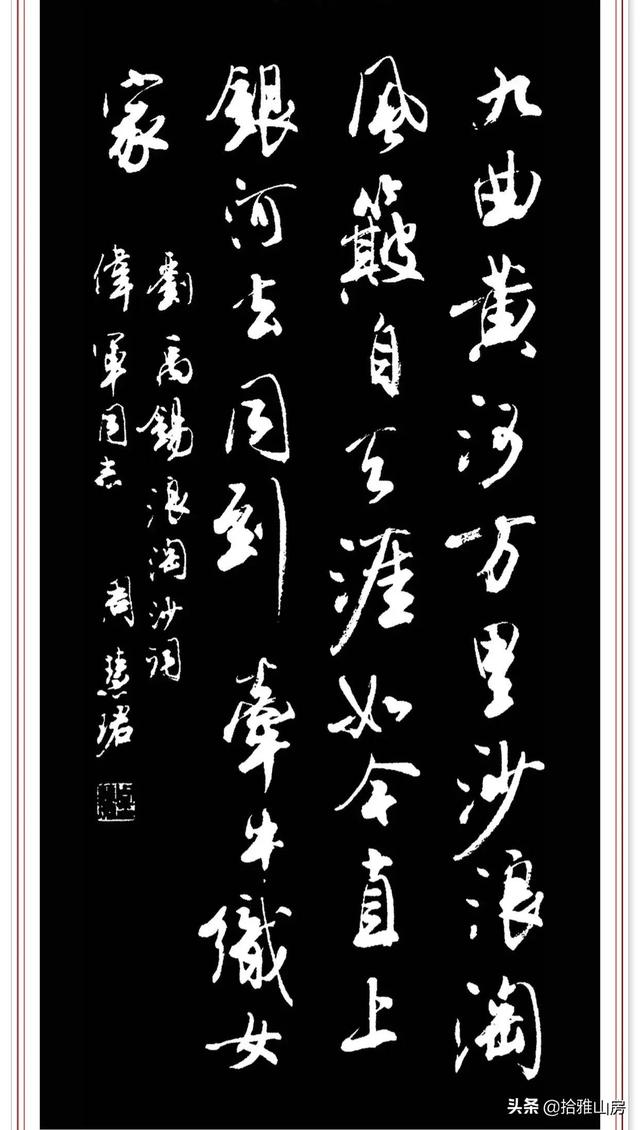 九曲黄河万里沙浪淘
風簸自天涯如今直上
銀河去同到牽牛織女
家
劉禹錫浪淘沙詞
偉軍同志 周慧珺
头条 @拾雅山房